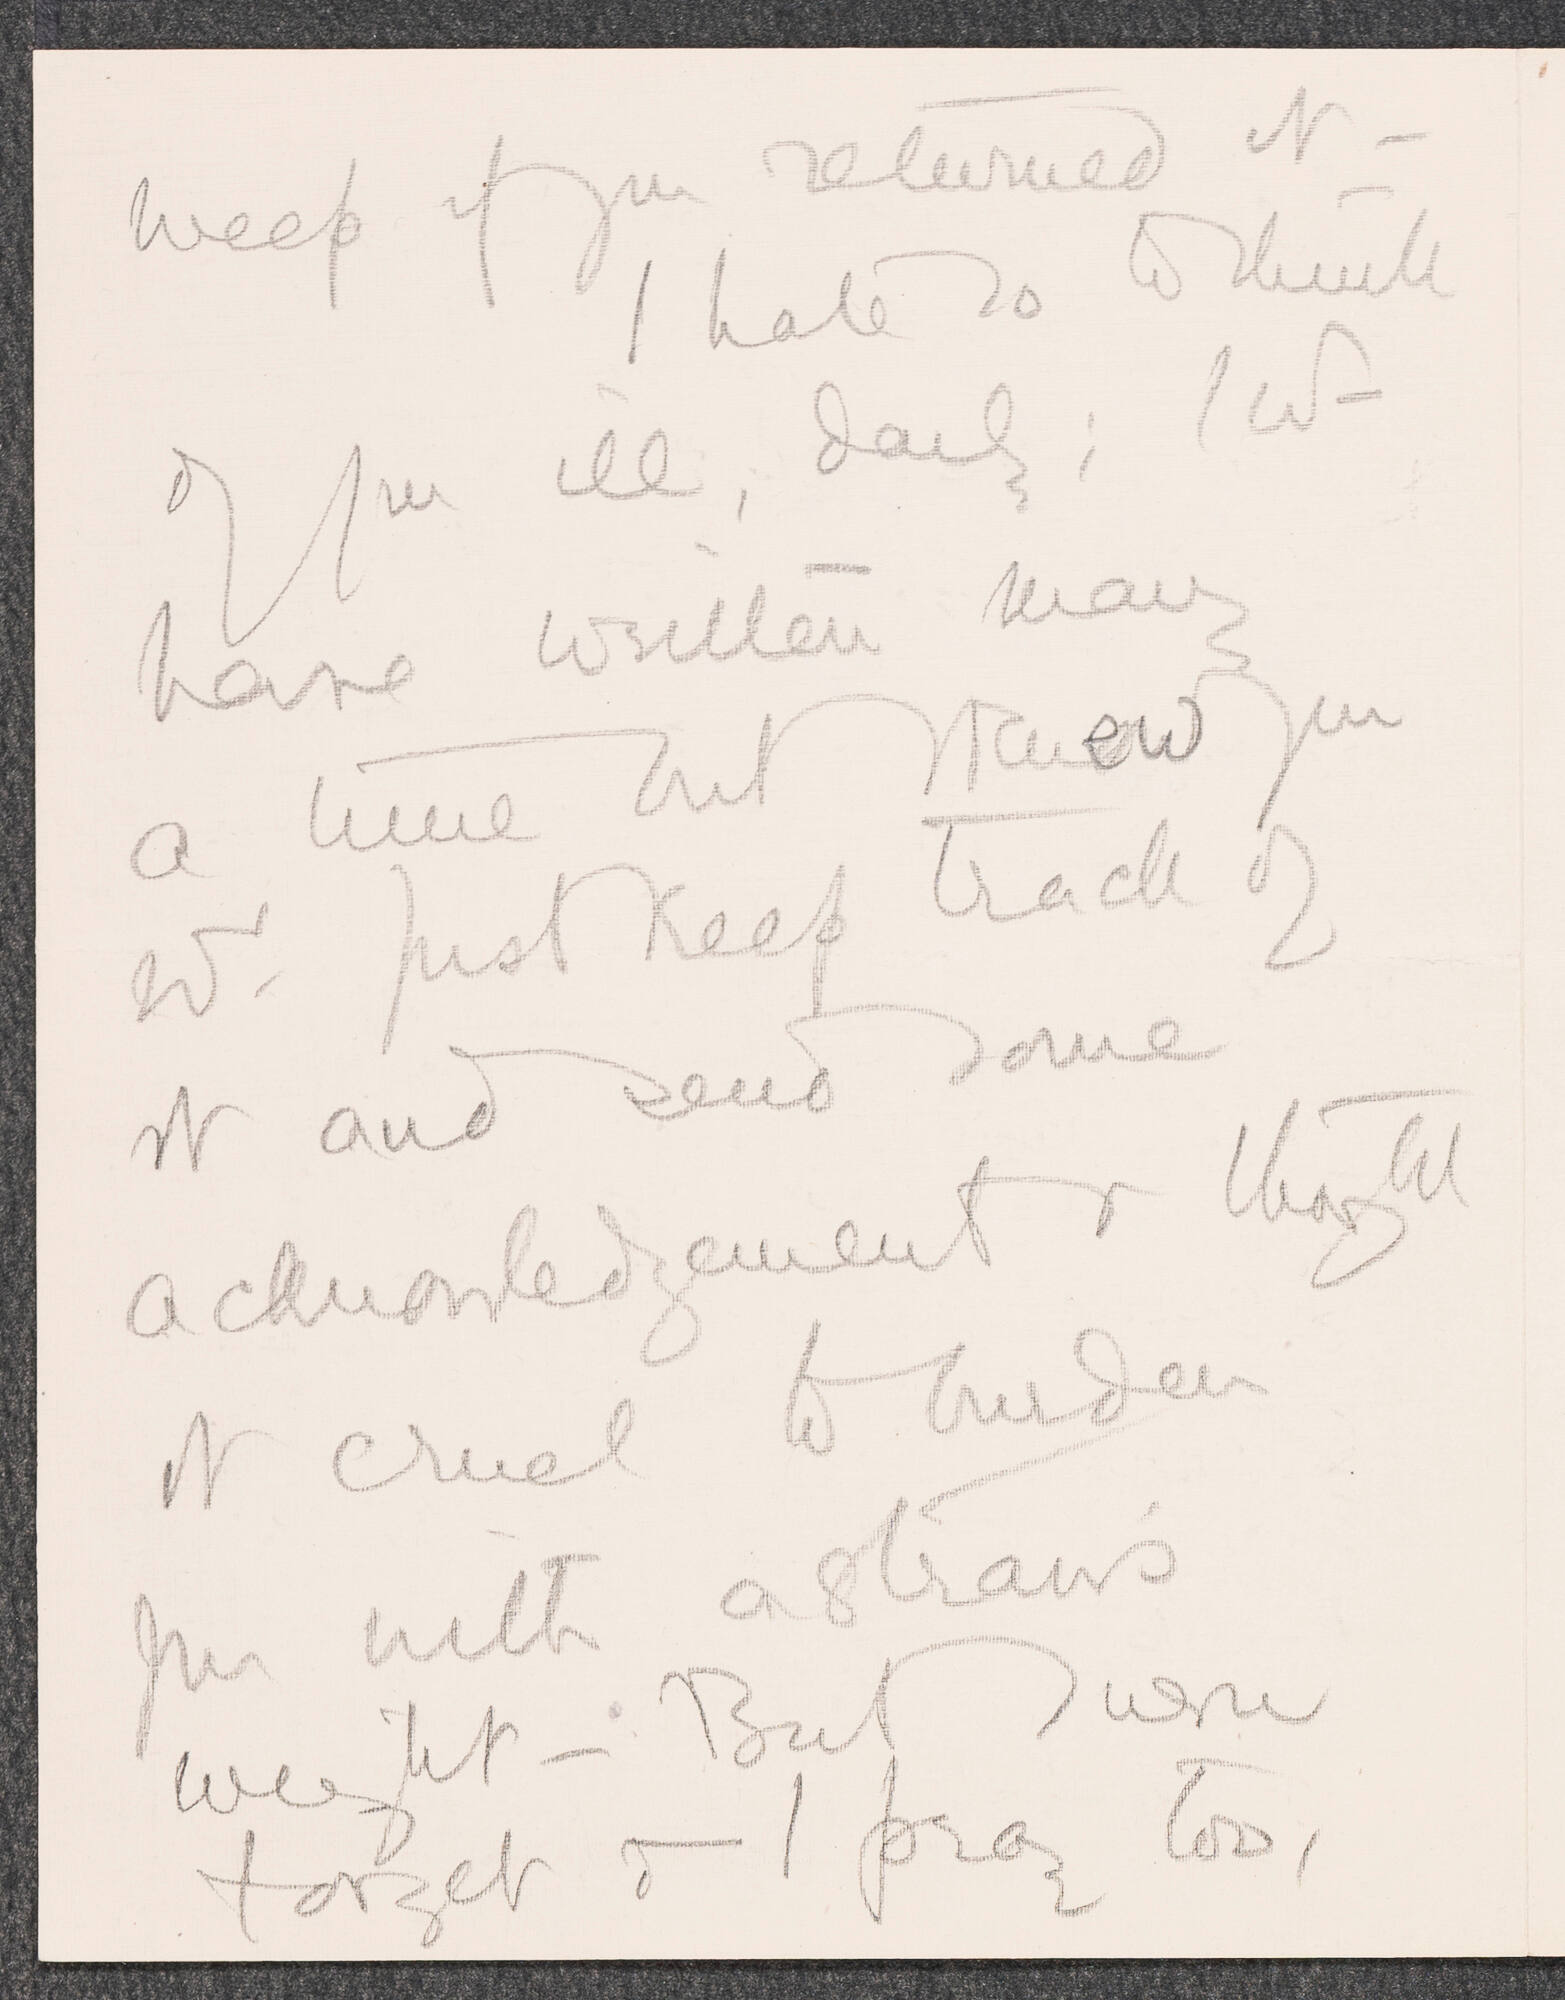 weep if you returned it –
I hate so to think
of you ill, dark; I w'd
have written many
a time but I knew you
w'd just keep track of
it and send some
acknowledgement & thought
it cruel to burden
you with a straw's
weight – But I never
forget & I pray too,